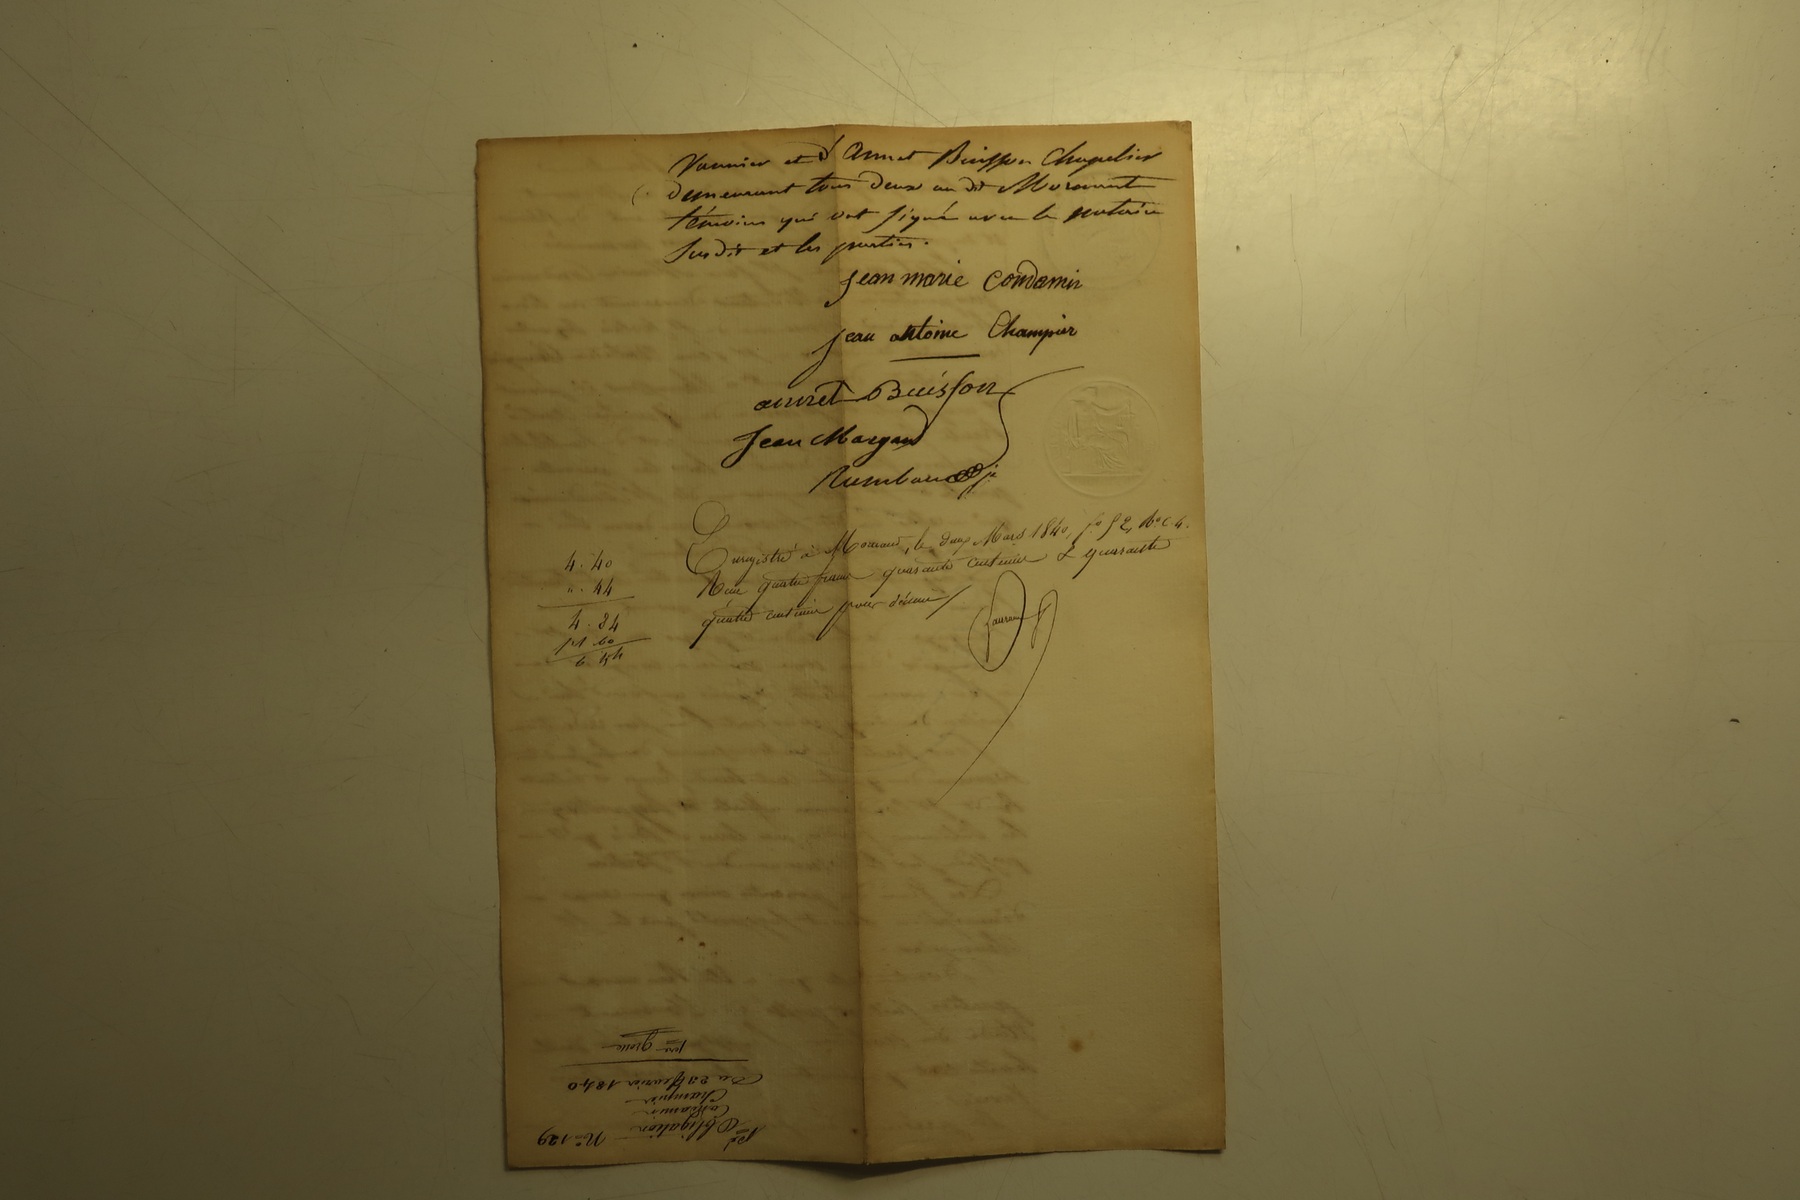 Vannier et d Annet Buisson Chapelier
demeurant tous deux au dit Mornant
témoins qui ont signé avec le notaire
susdit et les parties.
jean marie Condamin
jean antoine Champier
annet Buisson
Jean Margand
Enregistré à Mornant, le deux Mars 1840, fo 52, Ro c. 4.
Reçu quatre francs quarante centimes & quarante
quatre centimes pour décime
4. 40
". 44
4. 84
Obligation
No 129
Condamin
Champier
Du 23 février 1840
1ere grosse